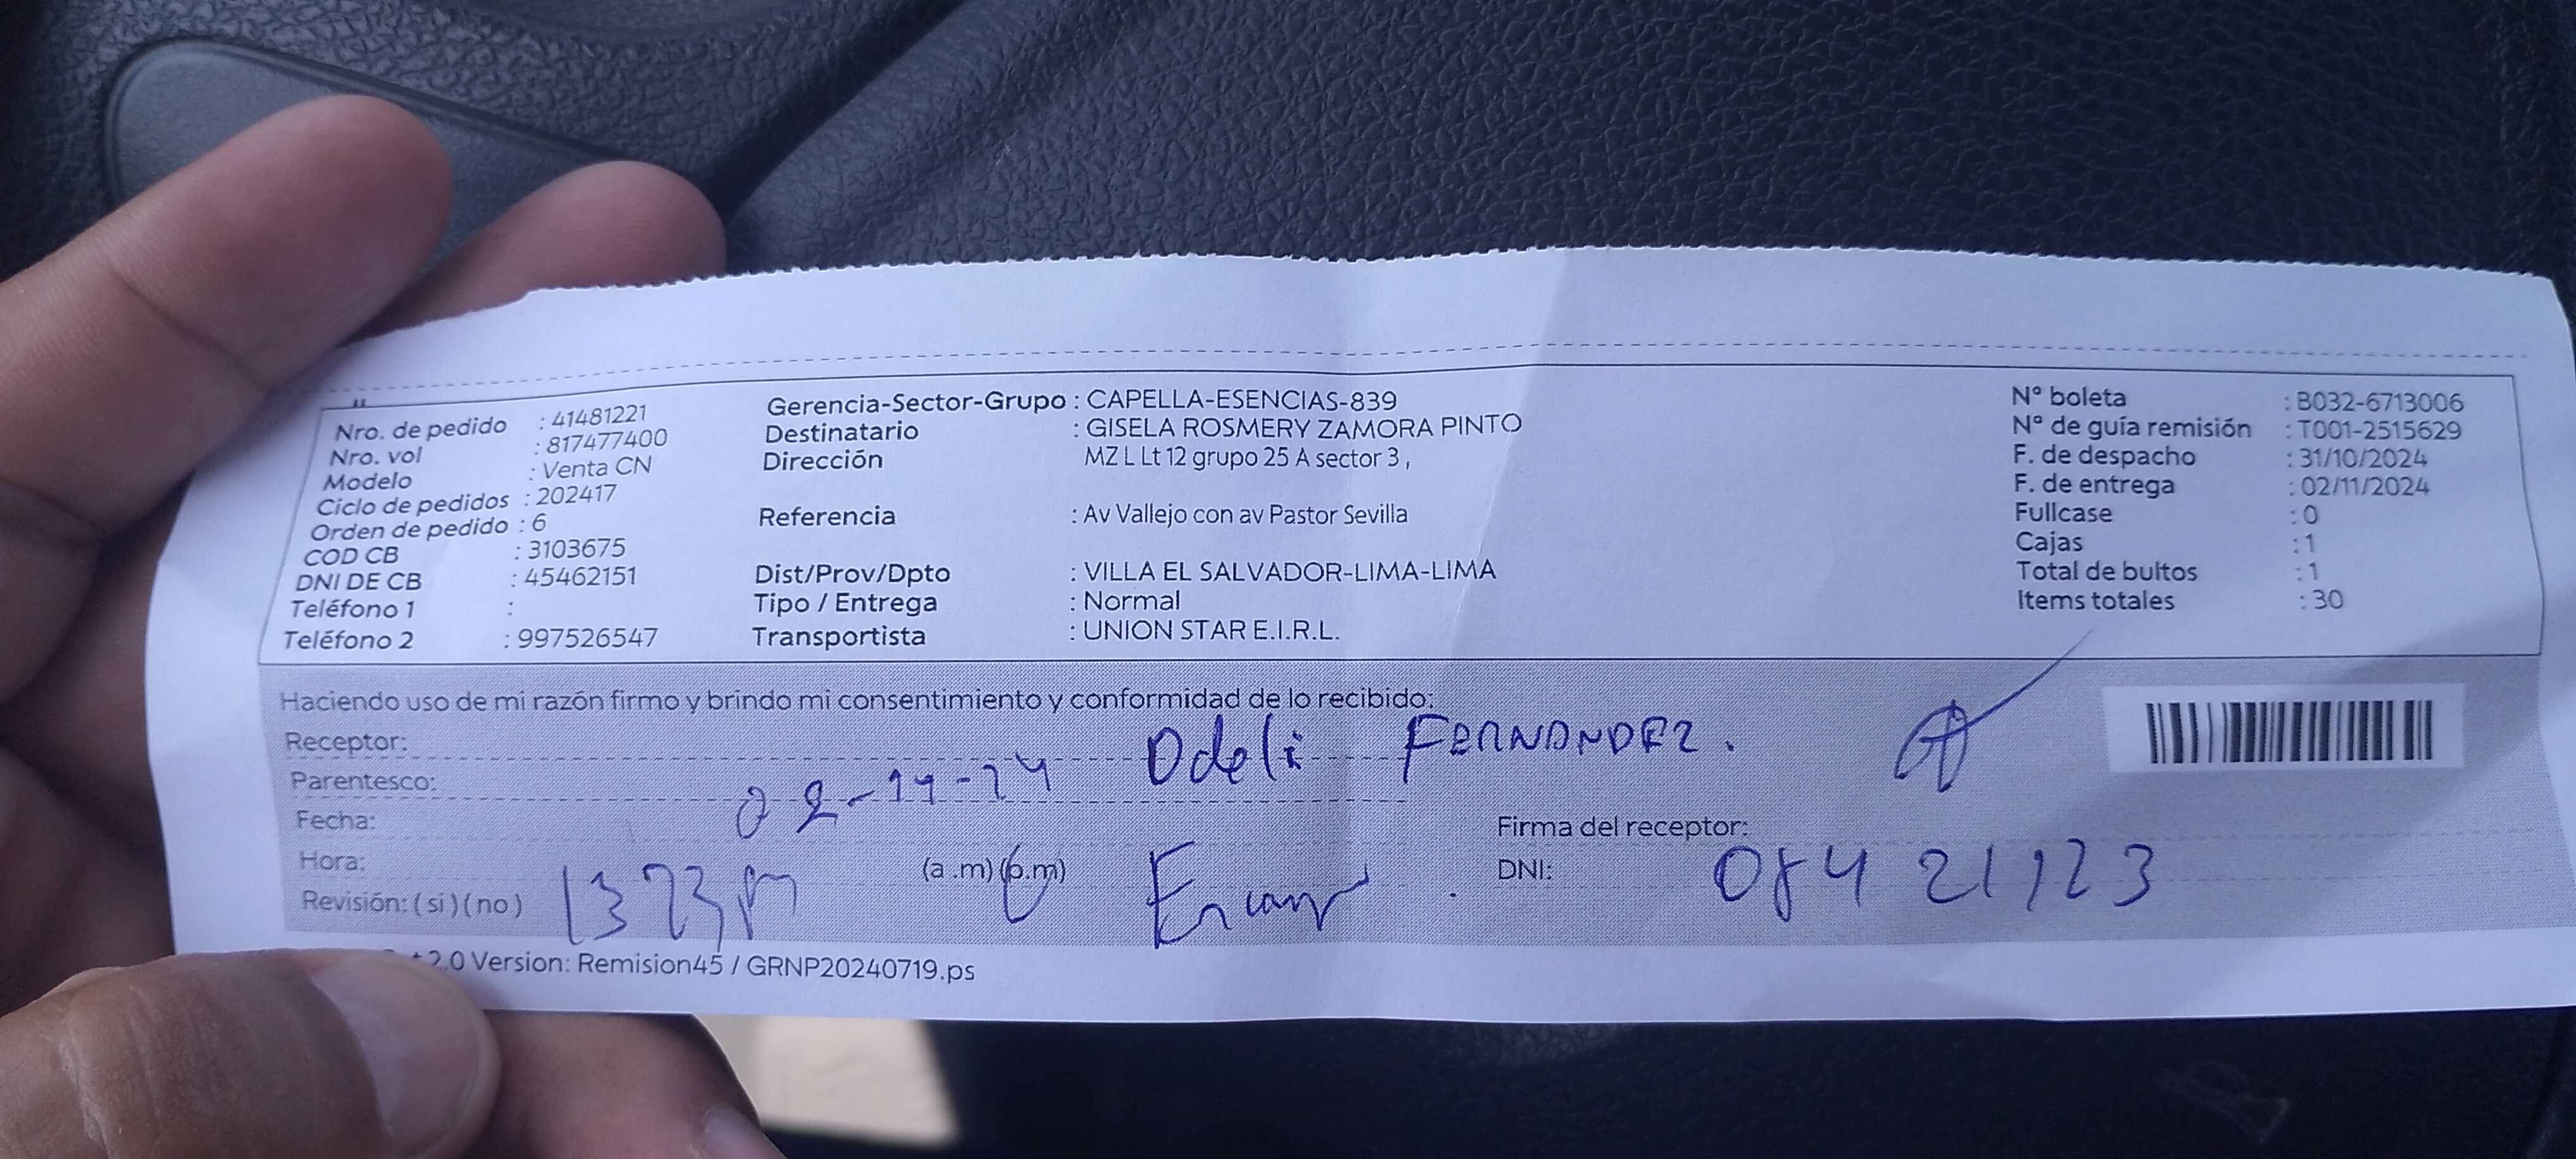 Nro. de pedido : 41481221
Nro. vol : 817477400
Modelo : Venta CN
Ciclo de pedidos : 202417
Orden de pedido : 6
COD CB : 3103675
DNI DE CB : 45462151
Teléfono 1 :
Teléfono 2 : 997526547
Gerencia-Sector-Grupo : CAPELLA-ESENCIAS-839
Destinatario : GISELA ROSMERY ZAMORA PINTO
Dirección MZ L Lt 12 grupo 25 A sector 3 ,
Referencia : Av Vallejo con av Pastor Sevilla
Dist/Prov/Dpto : VILLA EL SALVADOR-LIMA-LIMA
Tipo / Entrega : Normal
Transportista : UNION STAR E.I.R.L.
Nº boleta : B032-6713006
Nº de guía remisión : T001-2515629
F. de despacho : 31/10/2024
F. de entrega : 02/11/2024
Fullcase : 0
Cajas : 1
Total de bultos : 1
Items totales : 30
Haciendo uso de mi razón firmo y brindo mi consentimiento y conformidad de lo recibido:
Receptor: Odeli FERNANDEZ.
Parentesco:
Fecha:
Hora: (a .m) (p.m)
Revisión: ( si ) ( no )
Firma del receptor:
DNI:
2.0 Version: Remision45 / GRNP20240719.ps